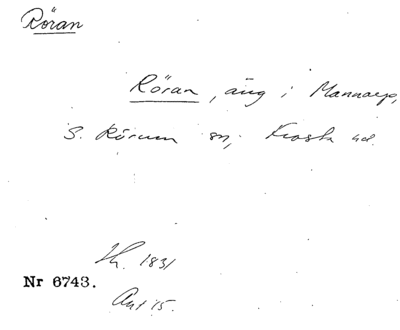 Röran
Röran, äng i Mannarp,
S. Rörum sn, Frosta hd.
Sk. 1831
Nr 6743.
Akt 15.